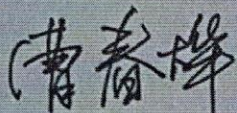 曹春烨